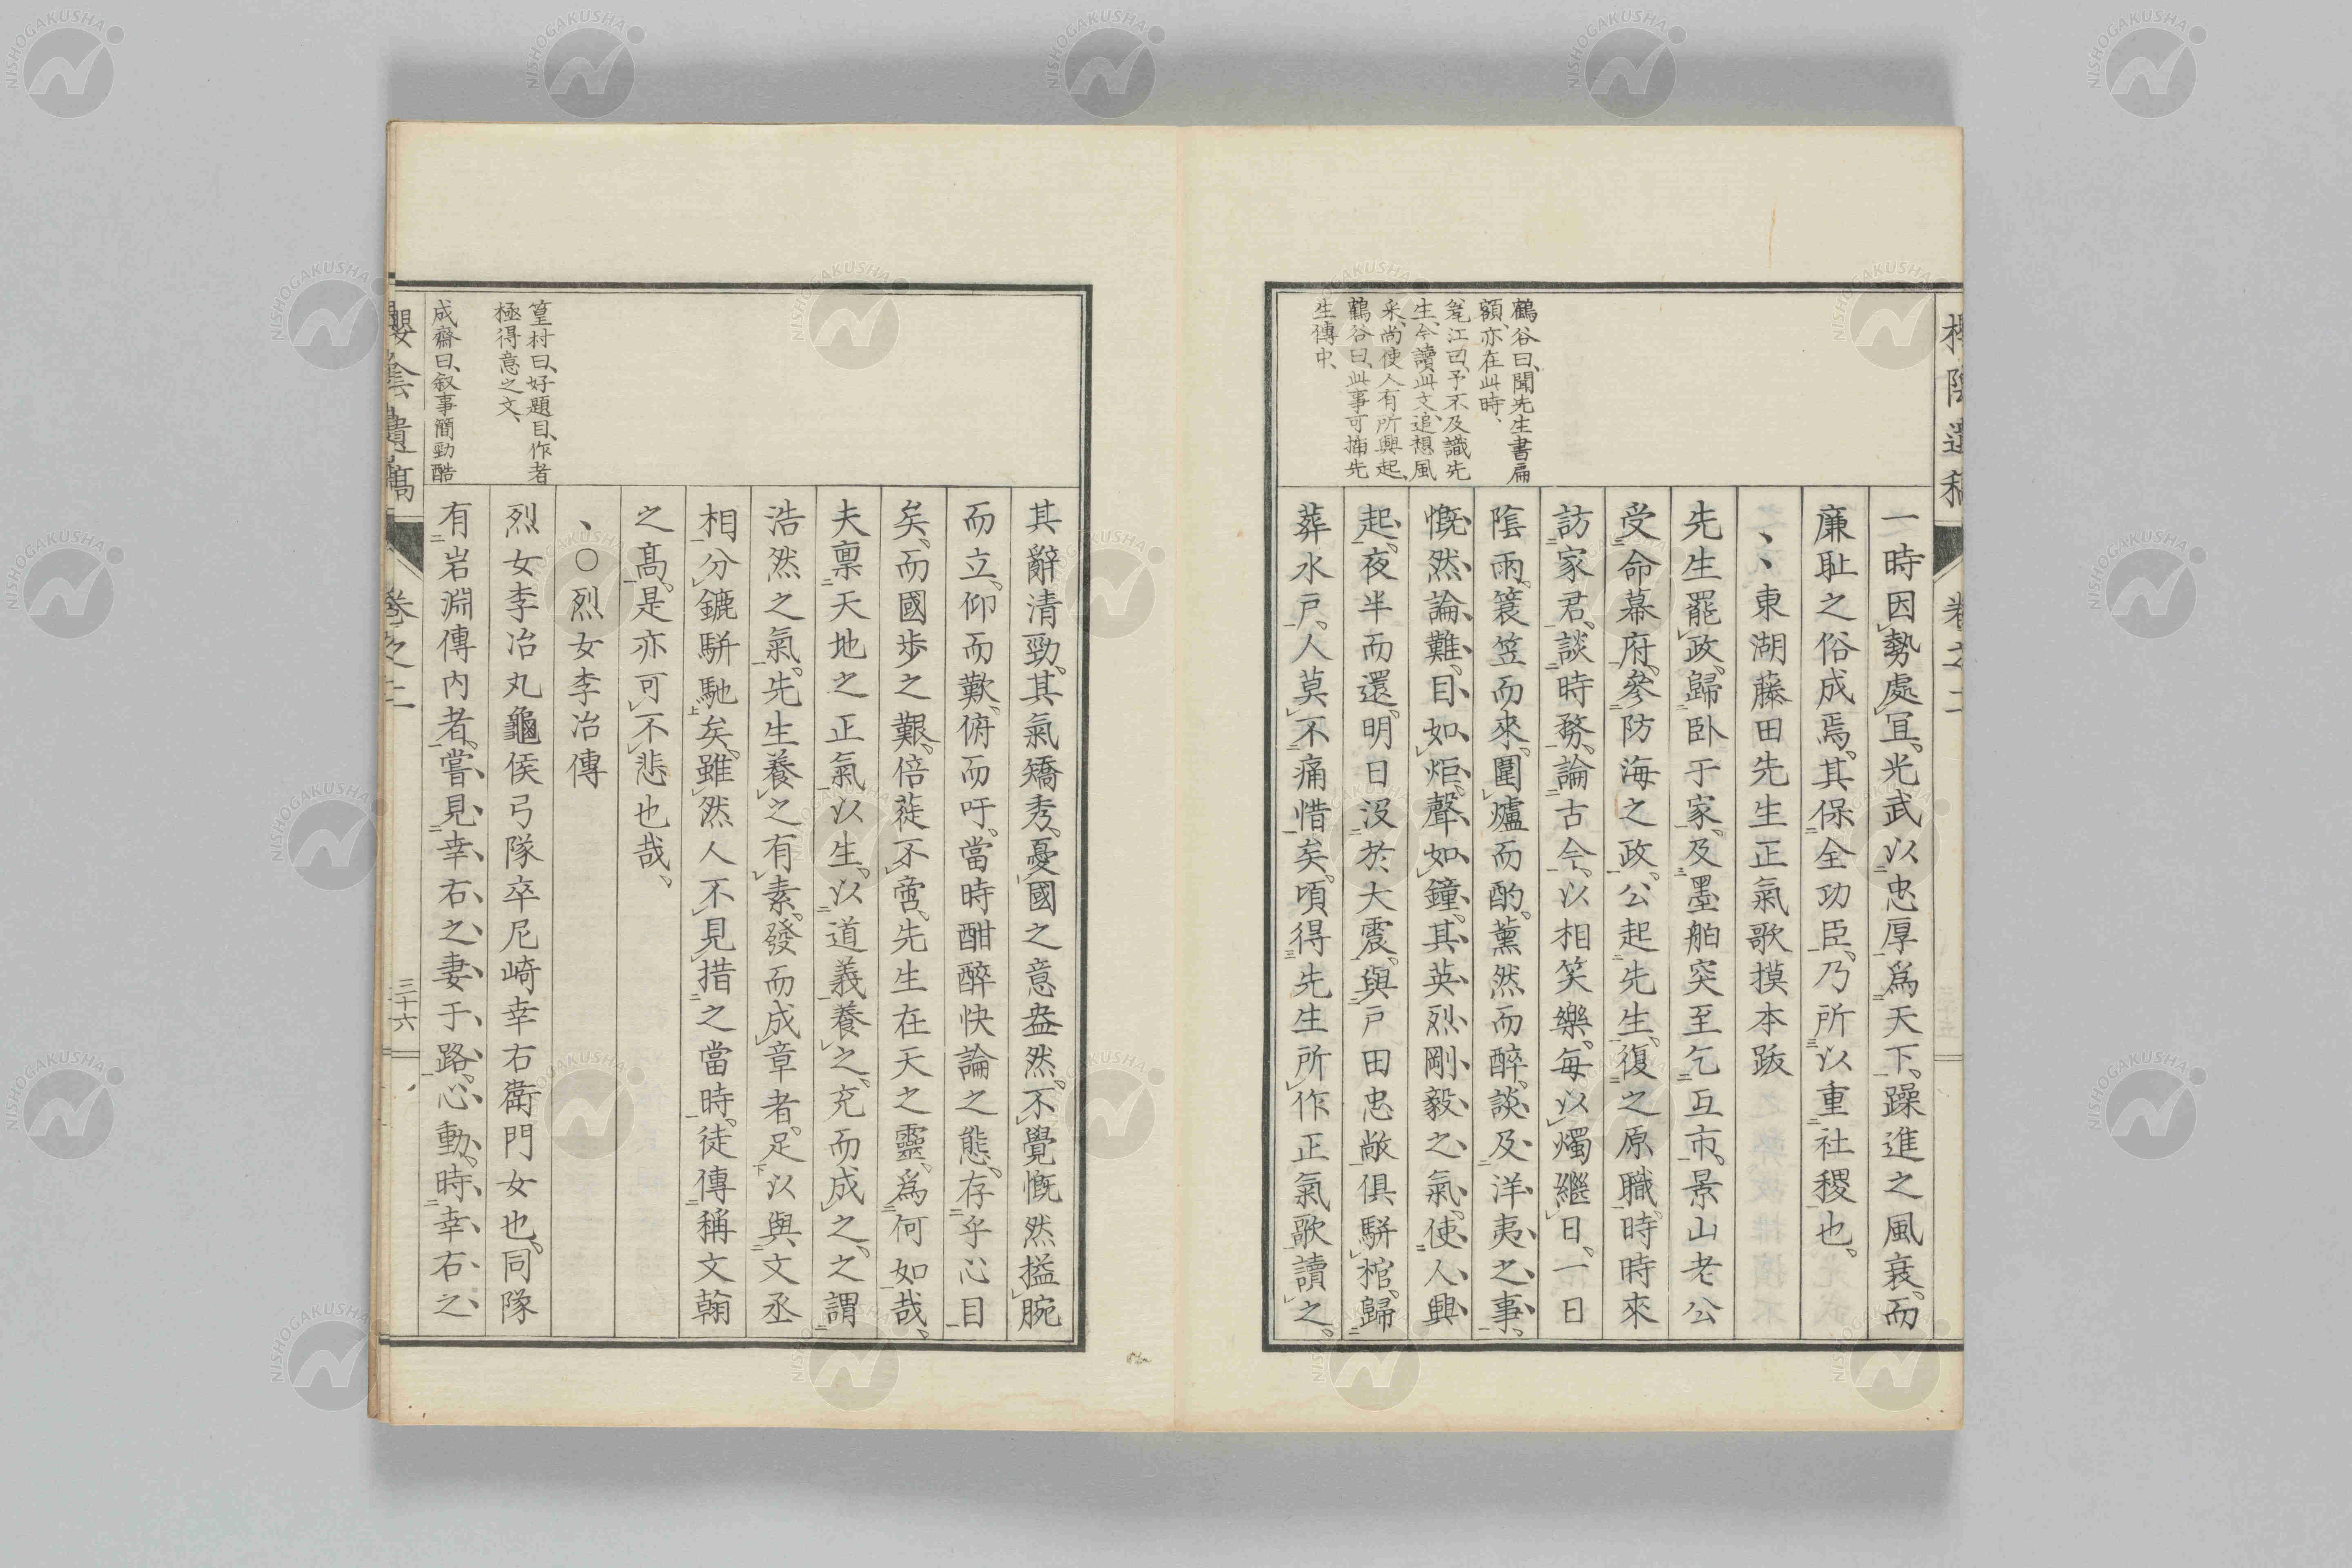 櫻陰遺稿 卷之二
一時因勢處宜、光武以忠厚爲天下、躁進之風衰、而
廉耻之俗成焉、其保全功臣、乃所以重社稷也、
東湖藤田先生正氣歌摸本跋
先生罷政、歸卧于家、及墨舶突至乞互市、景山老公
受命幕府、參防海之政、公起先生、復之原職、時時來
訪家君、談時務、論古今、以相笑樂、每以燭繼日、一日
陰雨、簑笠而來、圍爐而酌、薰然而醉、談及洋夷之事、
慨然論難、目如炬、聲如鐘、其英烈剛毅之氣、使人興
起、夜半而還、明日沒於大震、與戸田忠敞俱駢棺、歸
葬水戸、人莫不痛惜矣、頃得先生所作正氣歌讀之、
鶴谷曰、聞先生書扁
額、亦在此時、
江曰、予不及識先
生、今讀此文、追想風
采、尚使人有所興起、
鶴谷曰、此事可揷先
生傳中、
其辭清勁、其氣矯秀、憂國之意盎然、不覺慨然搤腕
而立、仰而歎、俯而吁、當時酣醉快論之態、存乎心目
矣、而國步之艱、倍蓰不啻、先生在天之靈、爲何如哉、
夫稟天地之正氣以生、以道義養之、充而成之、之謂
浩然之氣、先生養之有素、發而成章者、足以與文丞
相分鑣駢馳矣、雖然人不見措之當時、徒傳稱文翰
之高、是亦可不悲也哉、
○烈女李冶傳
烈女李冶丸龜侯弓隊卒尼崎幸右衛門女也、同隊
有岩淵傳內者、嘗見幸右之妻于路、心動、時幸右之
篁村曰、好題目、作者
極得意之文、
成齋曰、叙事簡勁酷
櫻陰遺稿 卷之二 三十六